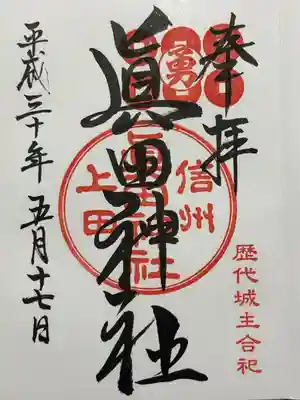 奉拝
勇
眞田神社
信州
上田
眞田神社
歴代城主合祀
平成三十年五月十七日